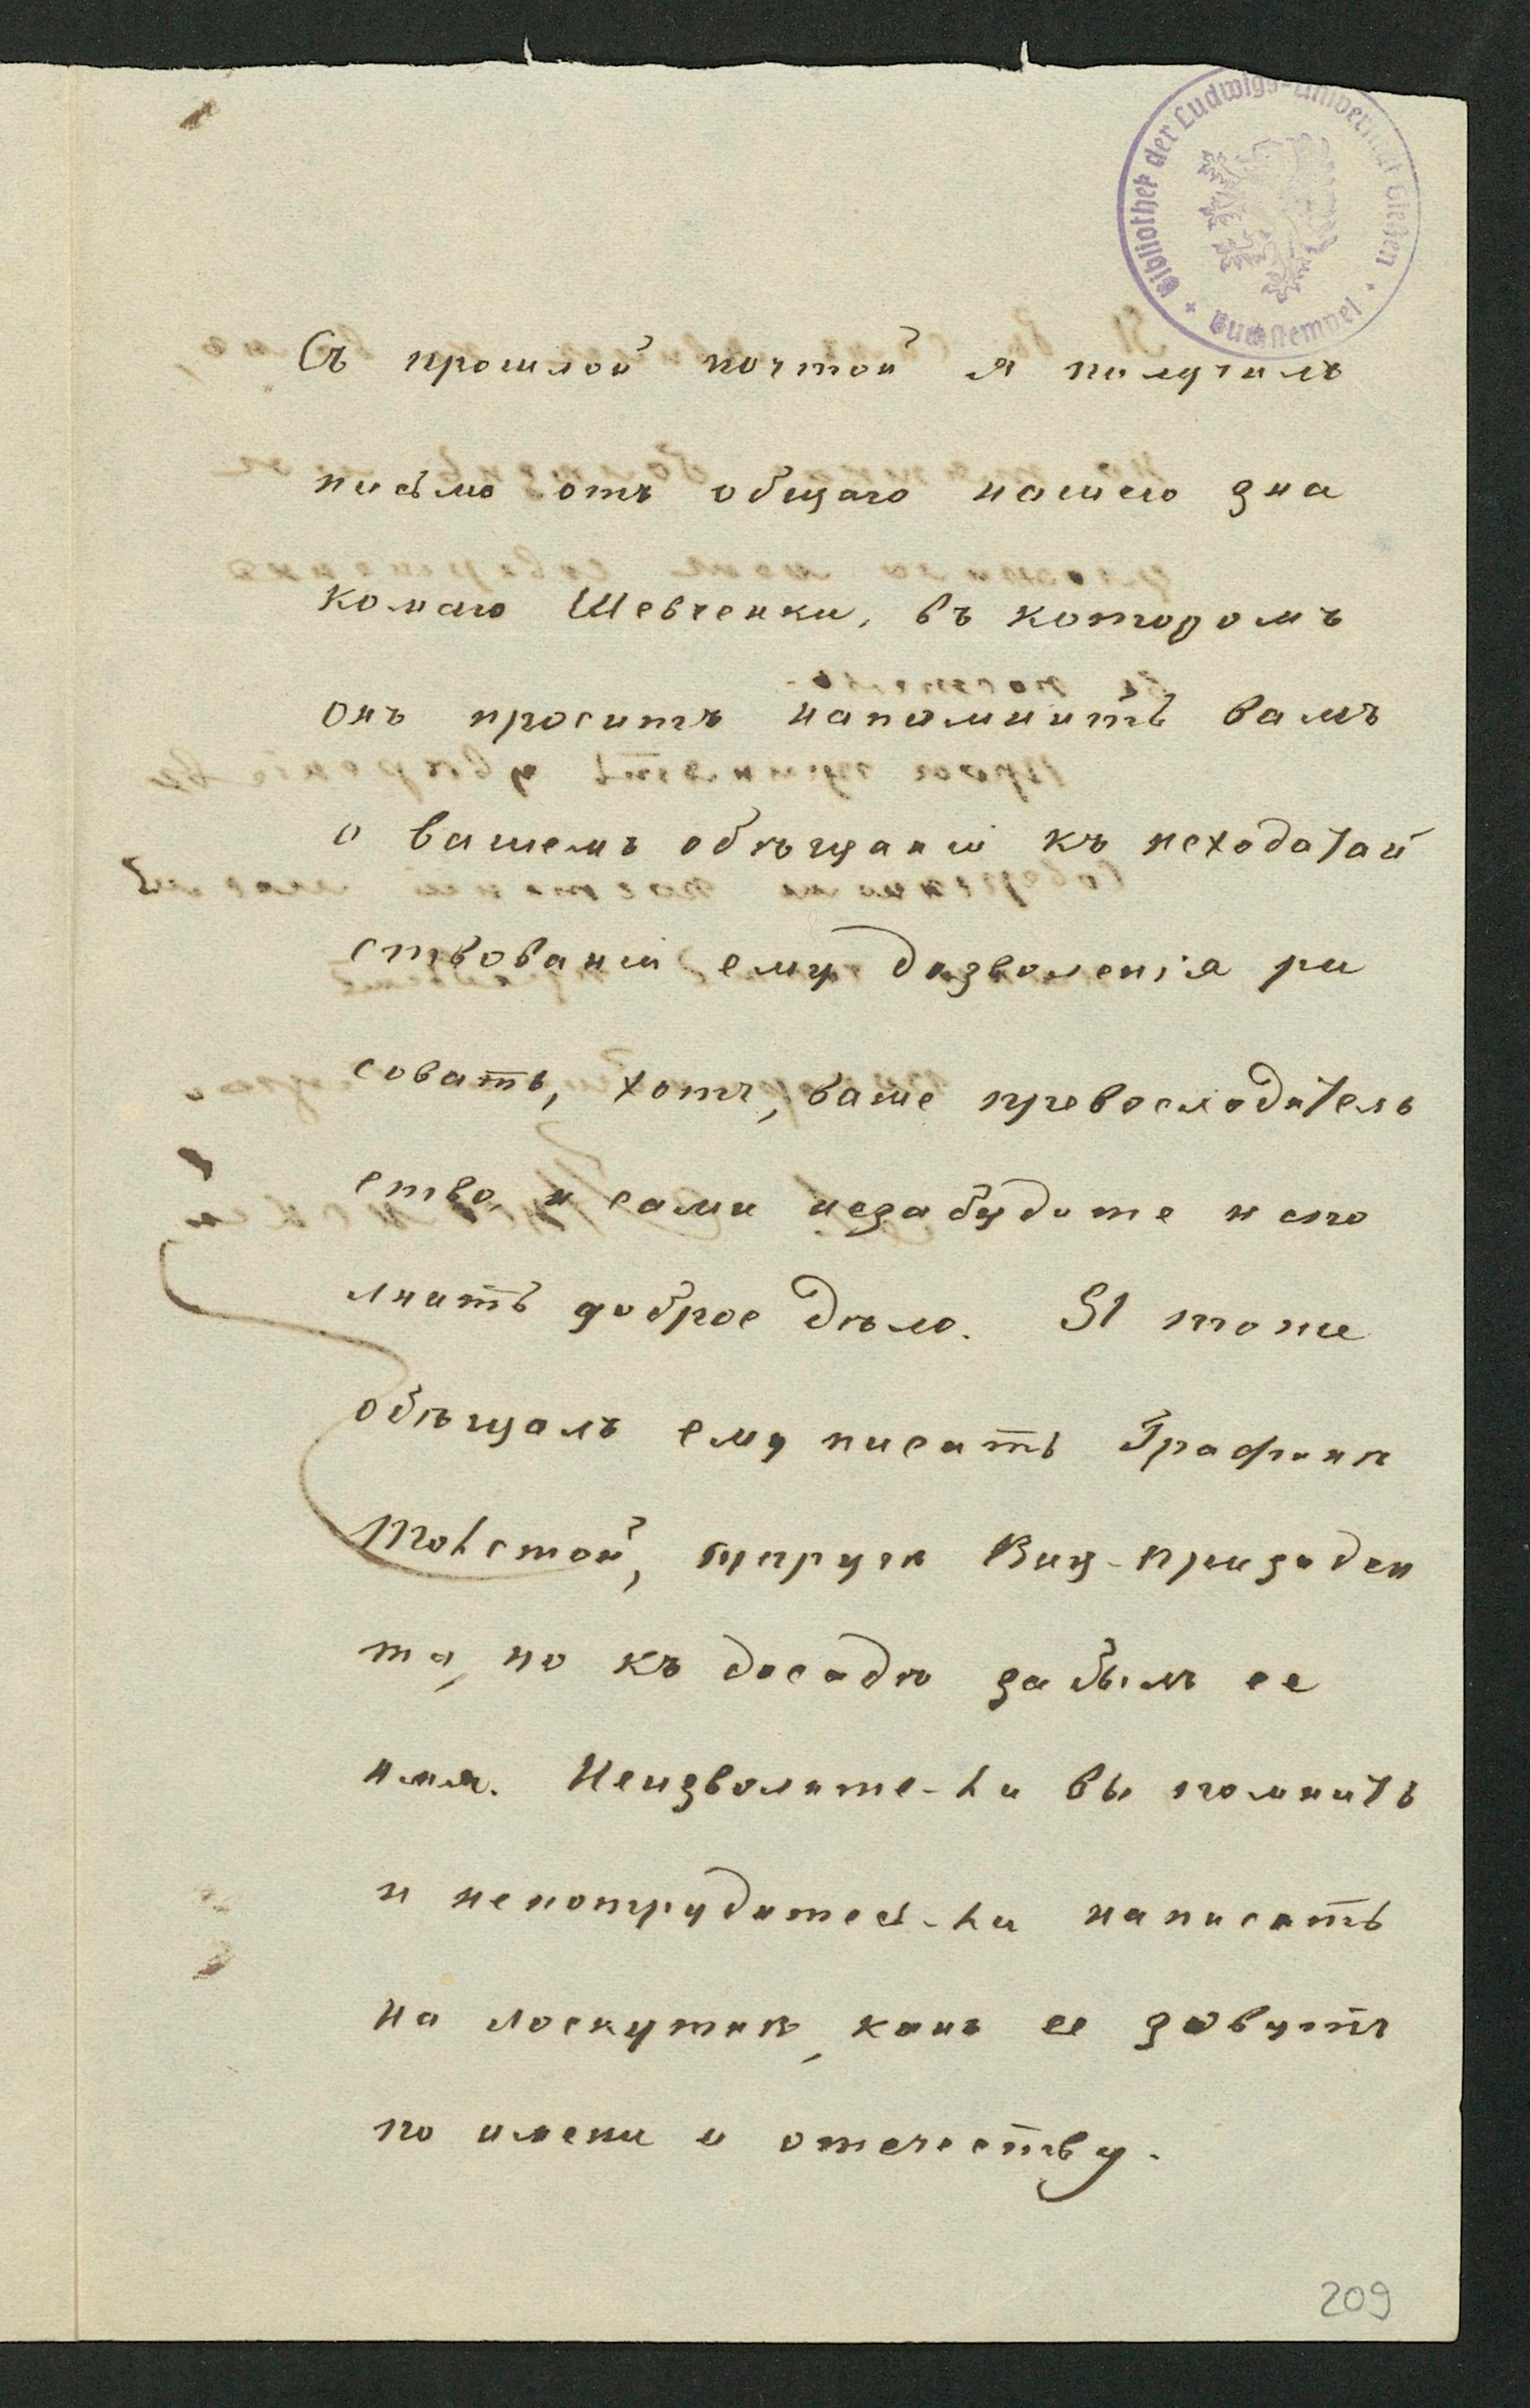 Bibliothek der Ludwigs-Universität Gießen
Съ прошлой почтой я получилъ
письмо отъ общаго нашего зна
комаго Шевченки, въ которомъ
онъ проситъ напомнить вамъ
о вашемъ обѣщаніи къ исходатай
ствованіи ему дозволенія ри
совать, хотя, ваше превосходитель
ство, и сами незабудите испо
лнить доброе дѣло. Я тоже
обѣщалъ ему писать Графинѣ
Толстой, супругѣ Виц-призиден
та, но къ досадѣ забылъ ее
имя. Неизволите-ли вы помнить
и непотрудитесь-ли написать
на лоскуткѣ, какъ ее зовутъ
по имени и отечеству.
209